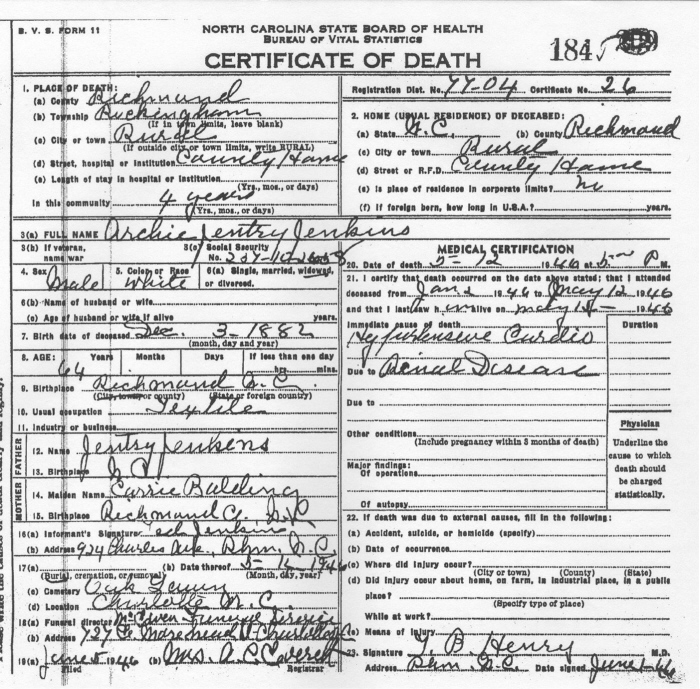 B. V. S. FORM 11
NORTH CAROLINA STATE BOARD OF HEALTH
BUREAU OF VITAL STATISTICS
CERTIFICATE OF DEATH
184
Registration Dist. No. 77-04 Certificate No. 26
1. PLACE OF DEATH:
(a) County Richmond
(b) Township Rockingham
(If in town limits, leave blank)
(c) City or town Rural
(If outside city or town limits, write RURAL)
(d) Street, hospital or institution County Home
(e) Length of stay in hospital or institution
(Yrs., mos., or days)
In this community 4 years
(Yrs., mos., or days)
2. HOME (USUAL RESIDENCE) OF DECEASED:
(a) State N.C. (b) County Richmond
(c) City or town Rural
(d) Street or R.F.D. County Home
(e) Is place of residence in corporate limits? no
(f) If foreign born, how long in U.S.A.? years.
3(a) FULL NAME Archie Jentry Jenkins
3(b) If veteran, name war
3(c) Social Security No.
4. Sex Male
5. Color or Race White
6(a) Single, married, widowed, or divorced.
6(b) Name of husband or wife
(c) Age of husband or wife if alive years.
7. Birth date of deceased Dec. 3-1882
(month, day and year)
8. AGE: Years Months Days If less than one day
64 hrs. mins.
9. Birthplace Richmond N.C.
(City, town or county) (State or foreign country)
10. Usual occupation Textile
11. Industry or business
FATHER
12. Name Jentry Jenkins
13. Birthplace N.C.
MOTHER
14. Maiden Name Carrie Balding
15. Birthplace Richmond Co. N.C.
16(a) Informant's Signature Jenkins
(b) Address 924 Charles Ave., Rhm. N.C.
17(a) (b) Date thereof 5-14-1946
(Burial, cremation, or removal) (Month, day, year)
(c) Cemetery Oak
(d) Location Charlotte N.C.
18(a) Funeral director McEwen Funeral Service
(b) Address 727 E. Morehead St Charlotte
19(a) June 5 1946 (b) Mrs. A. C.
Filed Registrar
MEDICAL CERTIFICATION
20. Date of death 5-12 1946 at 5 P. M.
21. I certify that death occurred on the date above stated; that I attended
deceased from Jan 2 1946 to May 12 1946
and that I last saw him alive on May 1946
Immediate cause of death
Duration
Hypertensive Cardio
Due to Renal Disease
Due to
Other conditions
(Include pregnancy within 3 months of death)
Major findings:
Of operations
Of autopsy
Physician
Underline the
cause to which
death should
be charged
statistically.
22. If death was due to external causes, fill in the following:
(a) Accident, suicide, or homicide (specify)
(b) Date of occurrence
(c) Where did injury occur?
(City or town) (County) (State)
(d) Did injury occur about home, on farm, in industrial place, in a public
place?
(Specify type of place)
While at work?
(e) Means of injury
23. Signature T. B. Henry M.D.
Address Rhm. N.C. Date signed June 1-46